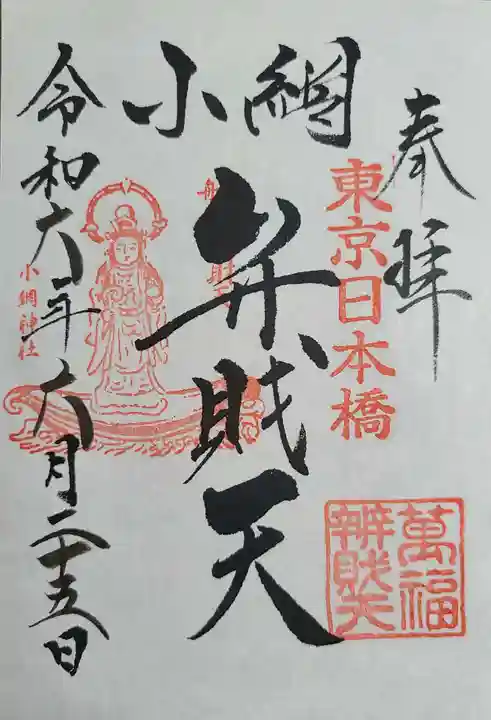 奉拝
東京日本橋
萬福
辨財天
小網
弁財天
小網神社
令和六年六月二十五日